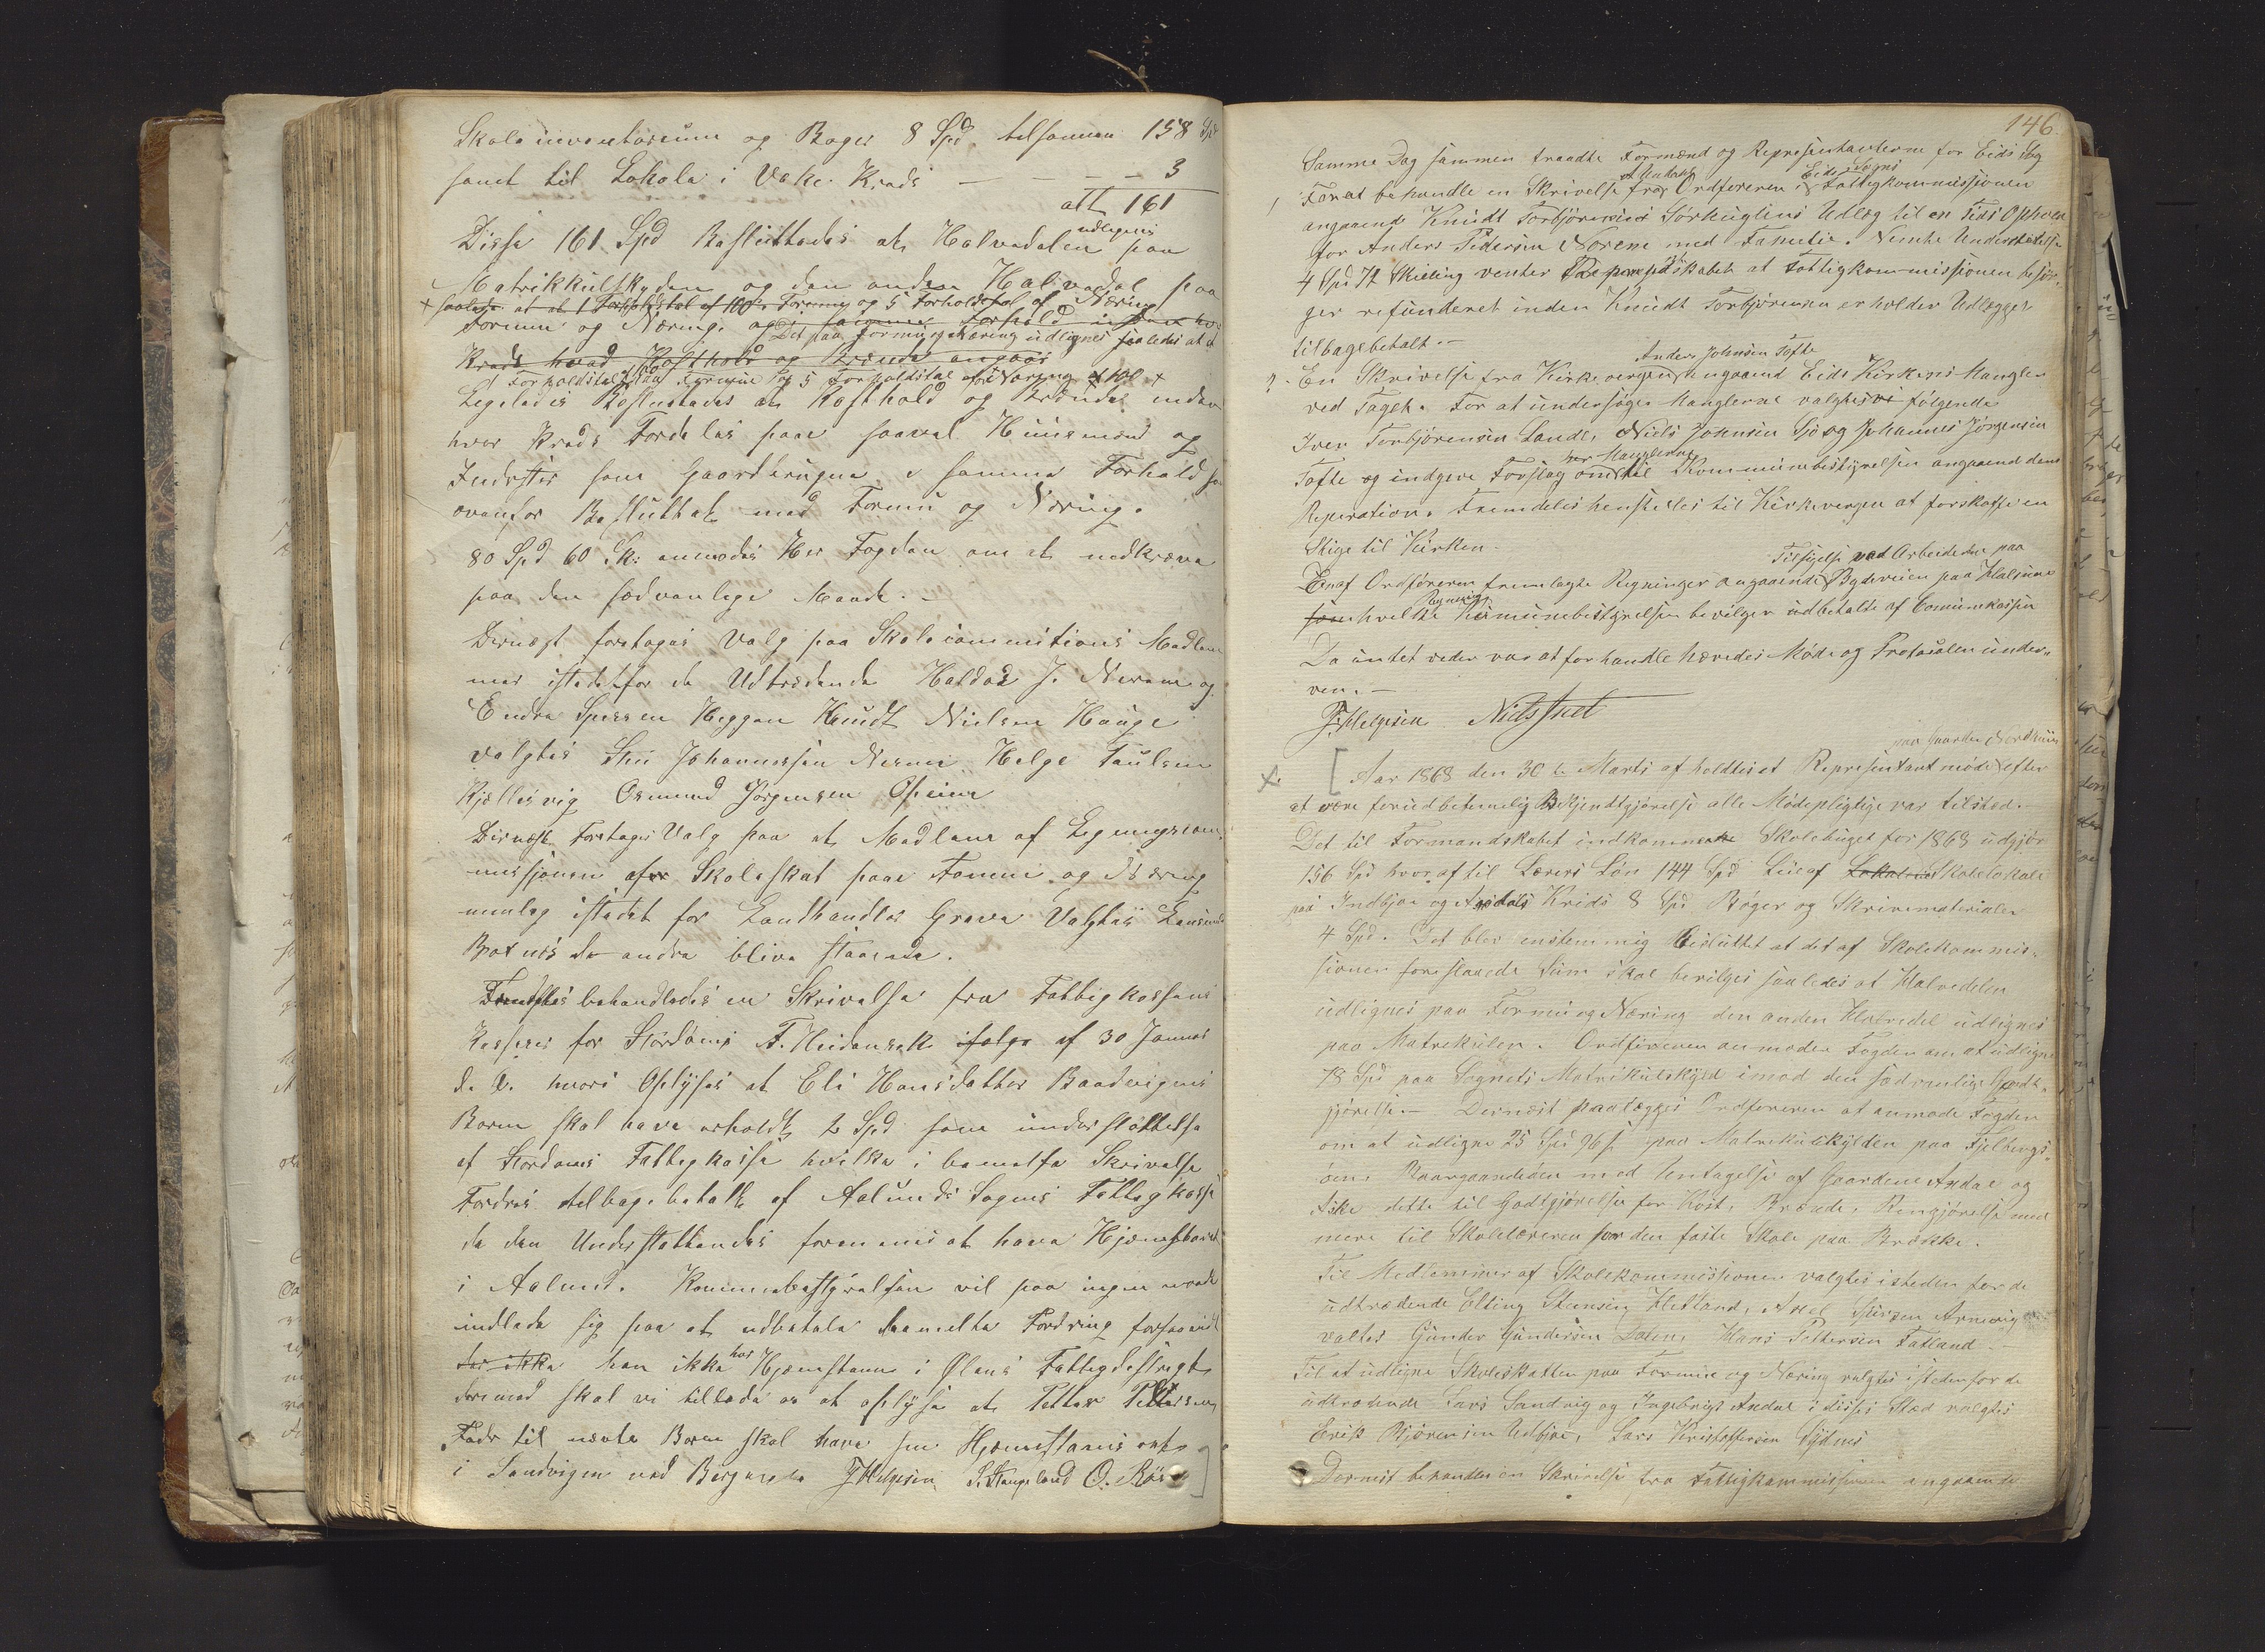 Skoleinventarium og Bøger 8 Spd. tilsammen 158 Spd
samt til Lokale i Vake Kreds — — — 3
alt 161
Disse 161 Spd Besluttedes at Halvedelen udlignes paa
Matrikkulskylden og den anden Halvedel paa
+ saaledes at at 1 Forholdstal af 100 Formue og 5 Forholdstal af Næring
Formue og Næring. og i samme Forhold inden hver
Det paa Formue og Næring udlignes saaledes at et
Kreds hvad Kosthold og Brænde angaar
1 Forholdstal af 100 Formue og 5 Forholdstal af Næring af 100 +
Ligeledes Besluttedes at Kosthold og Brænde inden
hver Kreds Fordeles paa saavel Huusmænd og
Inderster som Gaardbrugere i samme Forhold som
ovenfor Besluttet med Formue og Næring.
80 Spd 60 Sk: anmodes Her Fogden om at indkræve
paa den sædvanlige Maade. –
Dernæst foretoges Valg paa Skolecommitions Medlem
mer istedetfor de Udtrædende Haldor J. Nerem og
Endre Heggen Knudt Nielsen Hauge
valgtes Sten Johannessen Nerem Helge Paulsen
Kjellesvig Osmund Jørgensen Opheim
Dernæst Foretoges Valg paa et Medlem af Ligningscom
missjonen over Skoleskat paa Formue og Næring
nemlig istedet for Landhandler Greve Valgtes
Botnes de andre blive staaende.
Fremdeles behandledes en Skrivelse fra Fattigkassens
Kasserer for Stordøens F. Heidensak ifølge af 30 Januar
d. A. hvori Oplyses at Eli Hansdatter Baadvigens
Børn skal have erholdt 2 Spd som understøttelse
af Stordøens Fattigkasse hvilke i bemelte Skrivelse
Fordres tilbagebetalt af Aalunds Sogns Fattigkasse
da den Understøttendes formenes at have Hjemstavn
i Aalund. Kommunebestyrelsen vil paa ingen maade
indlade sig paa at udbetale bemelte Fordring forsaavidt
har ikke han ikke har Hjemstavn i Ølens Fattigdistrigt
derimod skal vi tillade os at oplyse at Petter Pettersen
Fader til nævte Børn skal have sin Hjemstavns ret
i Sandvigen ved Bergen J Helgesen S. Stangeland O. Røs
146.
Samme Dag sammen traadte Formænd og Representanterne for Eids Sogn
1 For at behandle en Skrivelse fra Ordføreren i Eids Sogns Fattigkommissionen
angaaende Knudt Torbjørnsens Sørhuglens Udlæg til en Tids Ophold
for Anders Pedersen Norene med Familie. Nemte Understøttelse
4 Spd 72 Skilling venter Representskabet at Fattigkommissionen besør-
ger refunderet inden Knudt Torbjørnsen erholder Udlægget
tilbagebetalt. –
Anders Johnsen Tofte
2. En Skrivelse fra Kirkevergen angaaend Eids Kirkens Mangler
ved Taget. For at undersøge Manglerne valgtes vi følgende
Iver Torbjørensen Lande, Niels Johnsen Sjo og Johannes Jørgensen
Tofte og indgive Forslag om Manglerne til Kommunebestyrelsen angaaend dens
Reperation. Fremdeles henstilles til Kirkevergen at forskaffe en
Stige til Kirken
En af Ordføreren fremlagte Regninger angaaende Tilsyelse ved Arbeidede paa Bydeveien paa Halsene
som hvilke Regning Komunebestyrelsen bevilger udbetalte af Comunekassen
Da intet veder var at forhandle hævedes Møde og Protocolen under-
ven. –
J. Helgesen Niels
X. [ Aar 1868 den 30te Marts afholdtes et Representantmøde paa Gaarden Nordhuus efter
at være forudbetemelig Bekjendtgjørelse alle Mødepligtige var tilsted.
Det til Formandskabet indkommende Skolebuget for 1868 udgjør
156 Spd hvoraf til Lærers Løn 144 Spd Leie af Lokale Skolelokale
paa Indbjoe og Axdals Kreds 8 Spd Bøger og Skrivematerialer
4 Spd. Det blev enstemmig Besluttet at det af Skolekommis-
sionen foreslaaede Sum skal bevilges saaledes at Halvedelen
udlignes paa Formue og Næring den anden Halvedel udlignes
paa Matrekülen. Ordføreren anmoder Fogden om at udligne
78 Spd paa Sognets Matrikulskyld imod den sædvanlige Godt-
gjørelse. – Dernæst paalægges Ordføreren at anmode Fogden
om at udligne 25 Spd 96 s paa Matrekulskylden paa Fjelbergs-
øen, Borgundøen med Untagelse af Gaardene Axdal og
Eske dette til Godtgjørelse for Kost, Brænde, Rengjørelse med
mere til Skolelæreren for den faste Skole paa Brække.
Til Medlemmer af Skolekommissionen valgtes isteden for de
udtrædende Elling Steensen Hetland, Axel Arnevig
valtes Gunder Gundersen Dalen, Hans Pettersen Fatland –
Til at udligne Skoleskatten paa Formue og Næring valgtes istedenfor de
udtrædende Lars Sandvig og Ingebrigt Axdal i disses Sted valgtes
Erik Bjørensen Udbjoe, Lars Kristoffersen Sydnes
Dernest behandles en Skrivelse fra Fattigkommissionen angaaende